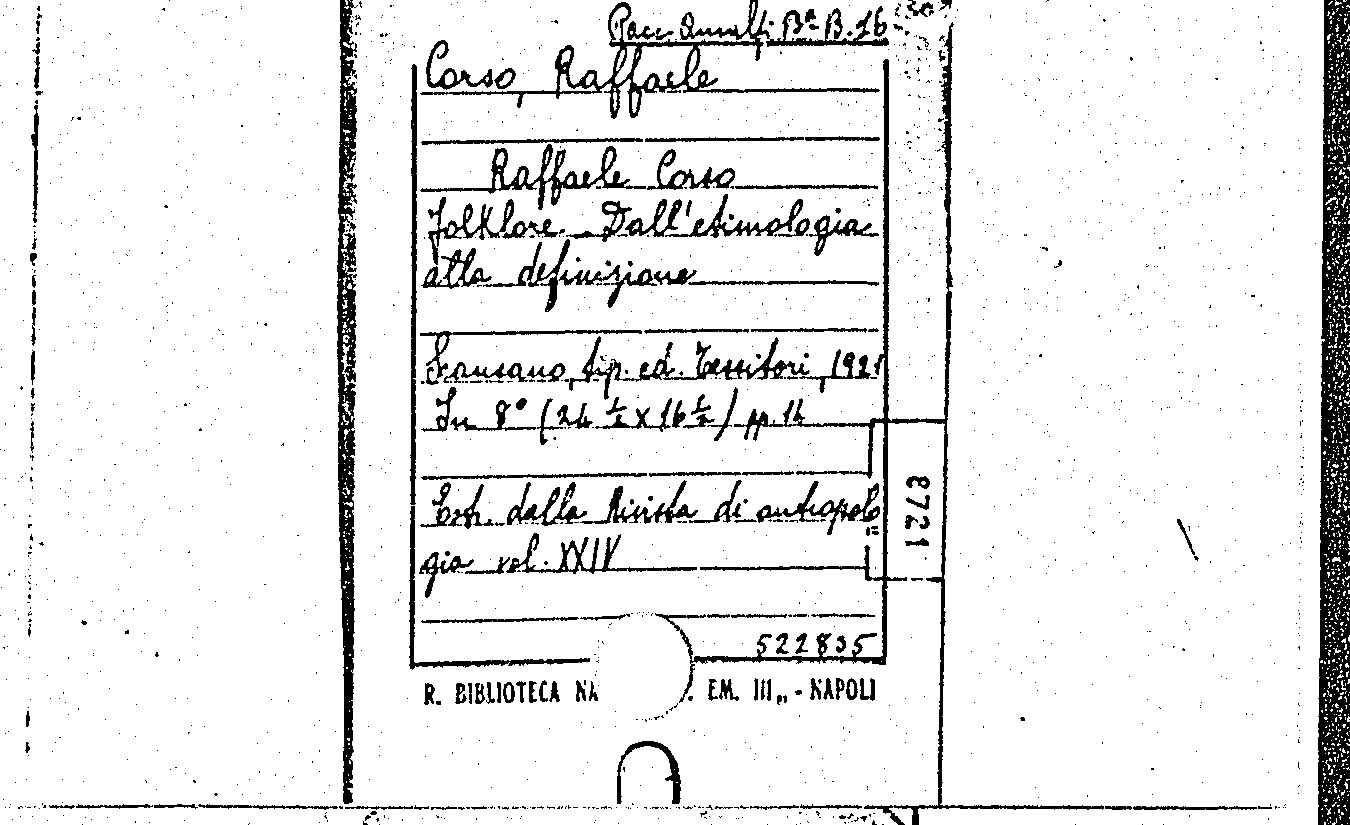 Racc. Amalfi Bª B. 16
Corso, Raffaele
Raffaele Corso
Folklore. Dall'etimologia
alla definizione
Scansano, tip. ed. Tessitori, 1921
In 8° (24 ½ x 16 ½) pp. 14
Estr. dalla Rivista di antropolo=
gia vol. XXIV
8721
522835
R. BIBLIOTECA NA . EM. III„ - NAPOLI